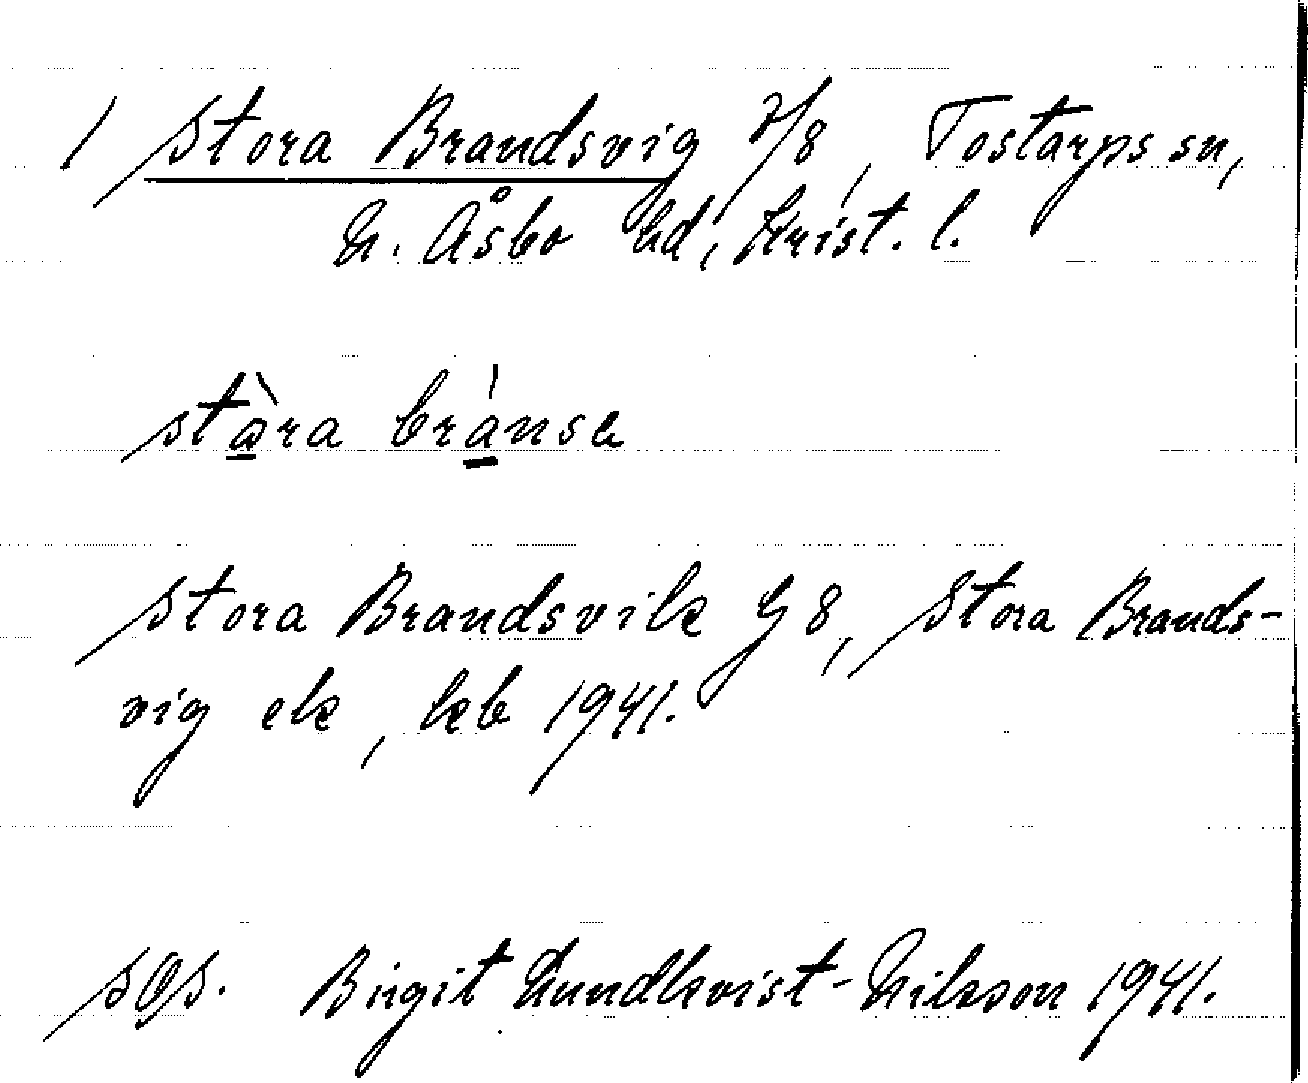 1 Stora Brandsvig 7/8, Tostarps sn,
N. Åsbo hd, Krist. l.
stàra bránsa
Stora Brandsvik G 8, Stora Brands-
vig ek, kb 1941.
SOS. Birgit Lundkvist-Nilsson 1941.